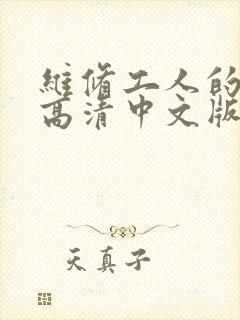 維脩工人的
高清中文版
天真子